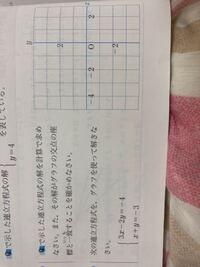 を表している。
y=4
で示した連立方程式の解
y
2
2
O
2
−2
−2
−4
で示した連立方程式の解を計算で求め
なさい。また，その解がグラフの交点の座
標と一致することを確かめなさい。
次の連立方程式を，グラフを使って解きな
さい。
3x−2y=−4
x+y=−3